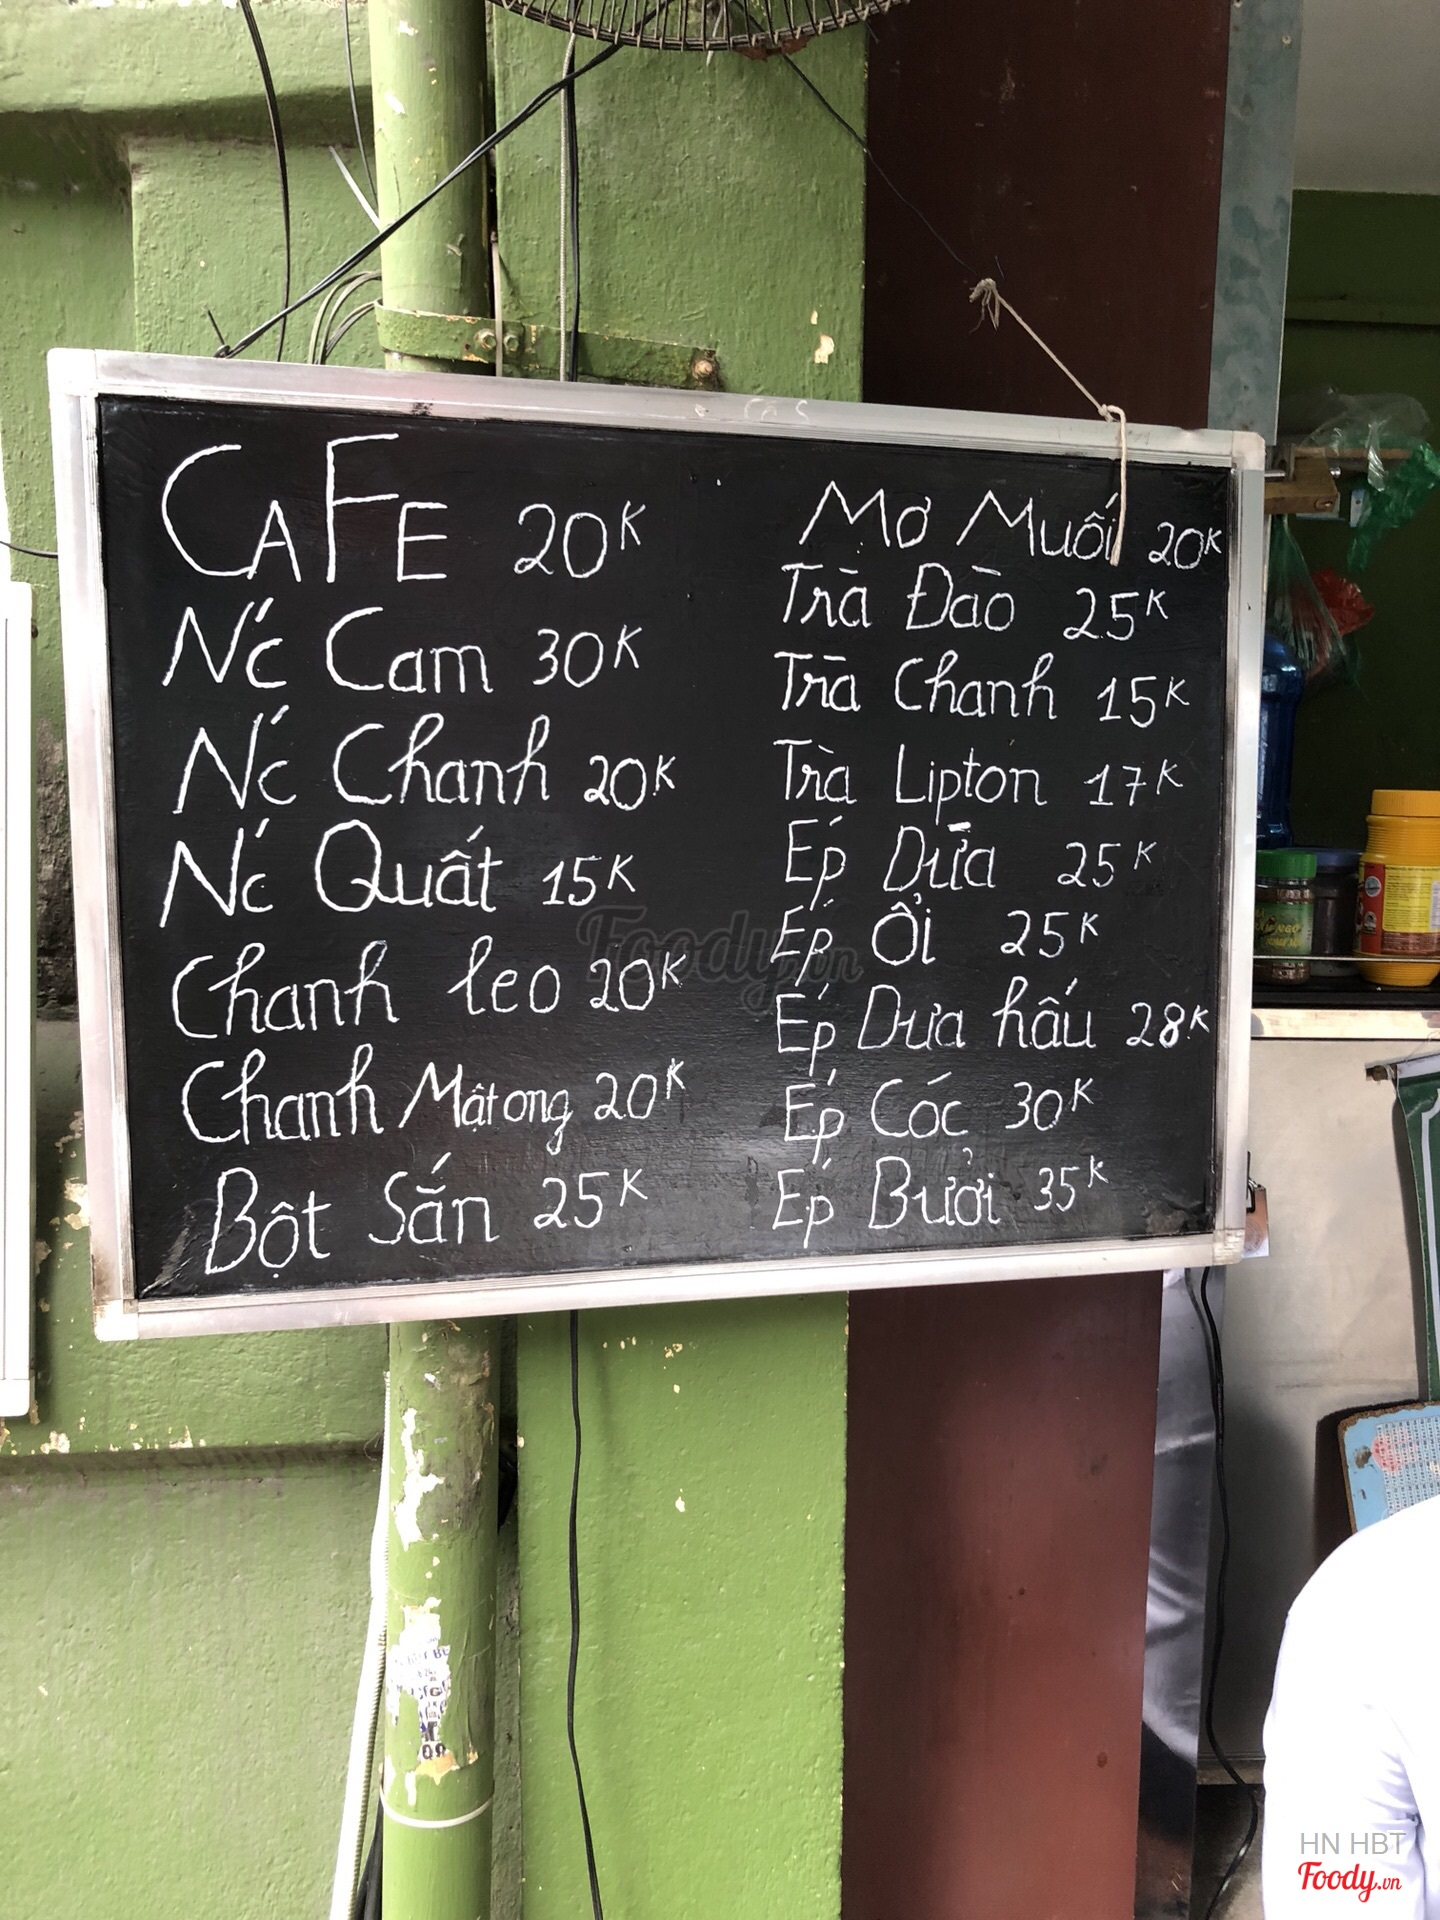 CAFE 20K
N'c Cam 30K
N'c Chanh 20K
N'c Quất 15K
Chanh leo 20K
Chanh Mật ong 20K
Bột Sắn 25K
Mơ Muối 20K
Trà Đào 25K
Trà Chanh 15K
Trà Lipton 17K
Ép Dừa 25K
Ép Ổi 25K
Ép Dưa hấu 28K
Ép Cóc 30K
Ép Bưởi 35K
Foody.vn
HN HBT
Foody.vn